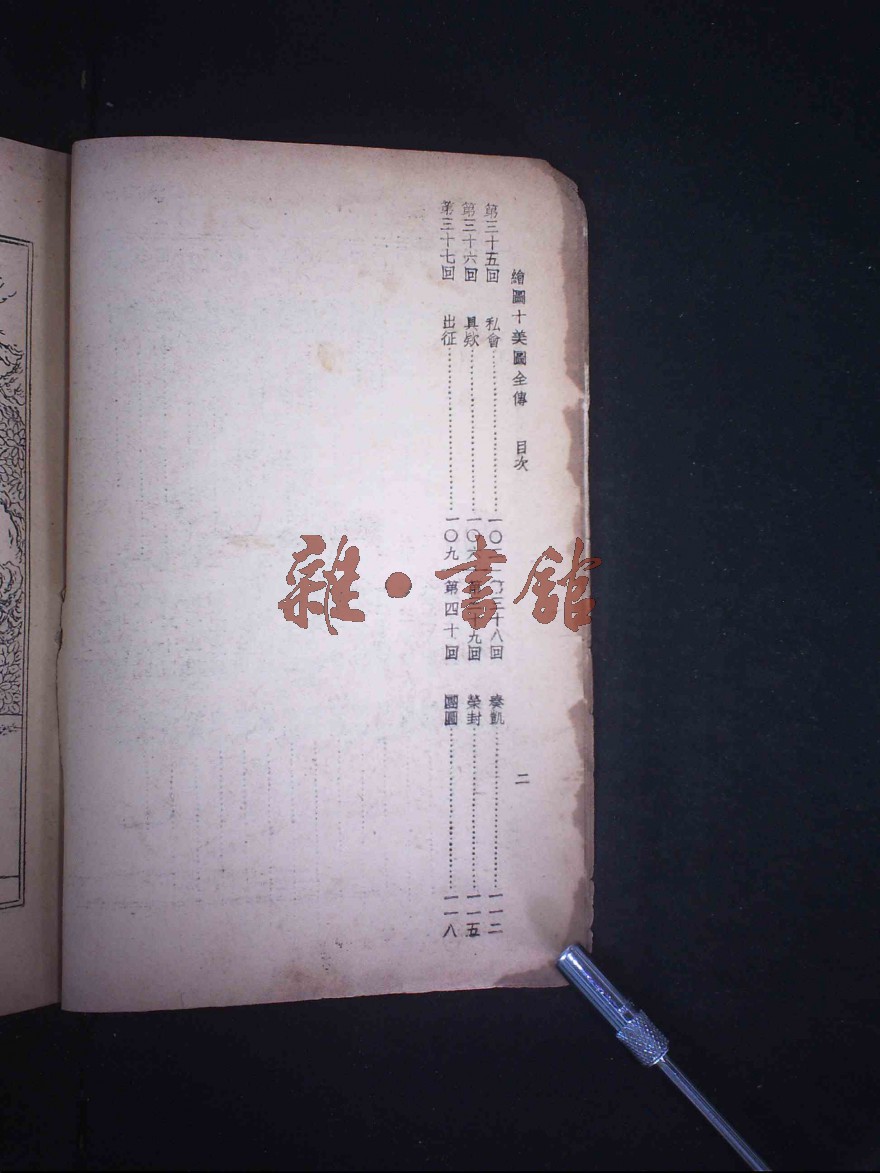 繪圖十美圖全傳 目次 二
第三十五回 私會……一〇
第三十六回 具欵……一〇六
第三十七回 出征……一〇九
第三十八回 奏凱……一一二
第三十九回 榮封……一一五
第四十回 團圓……一一八
雜·書館